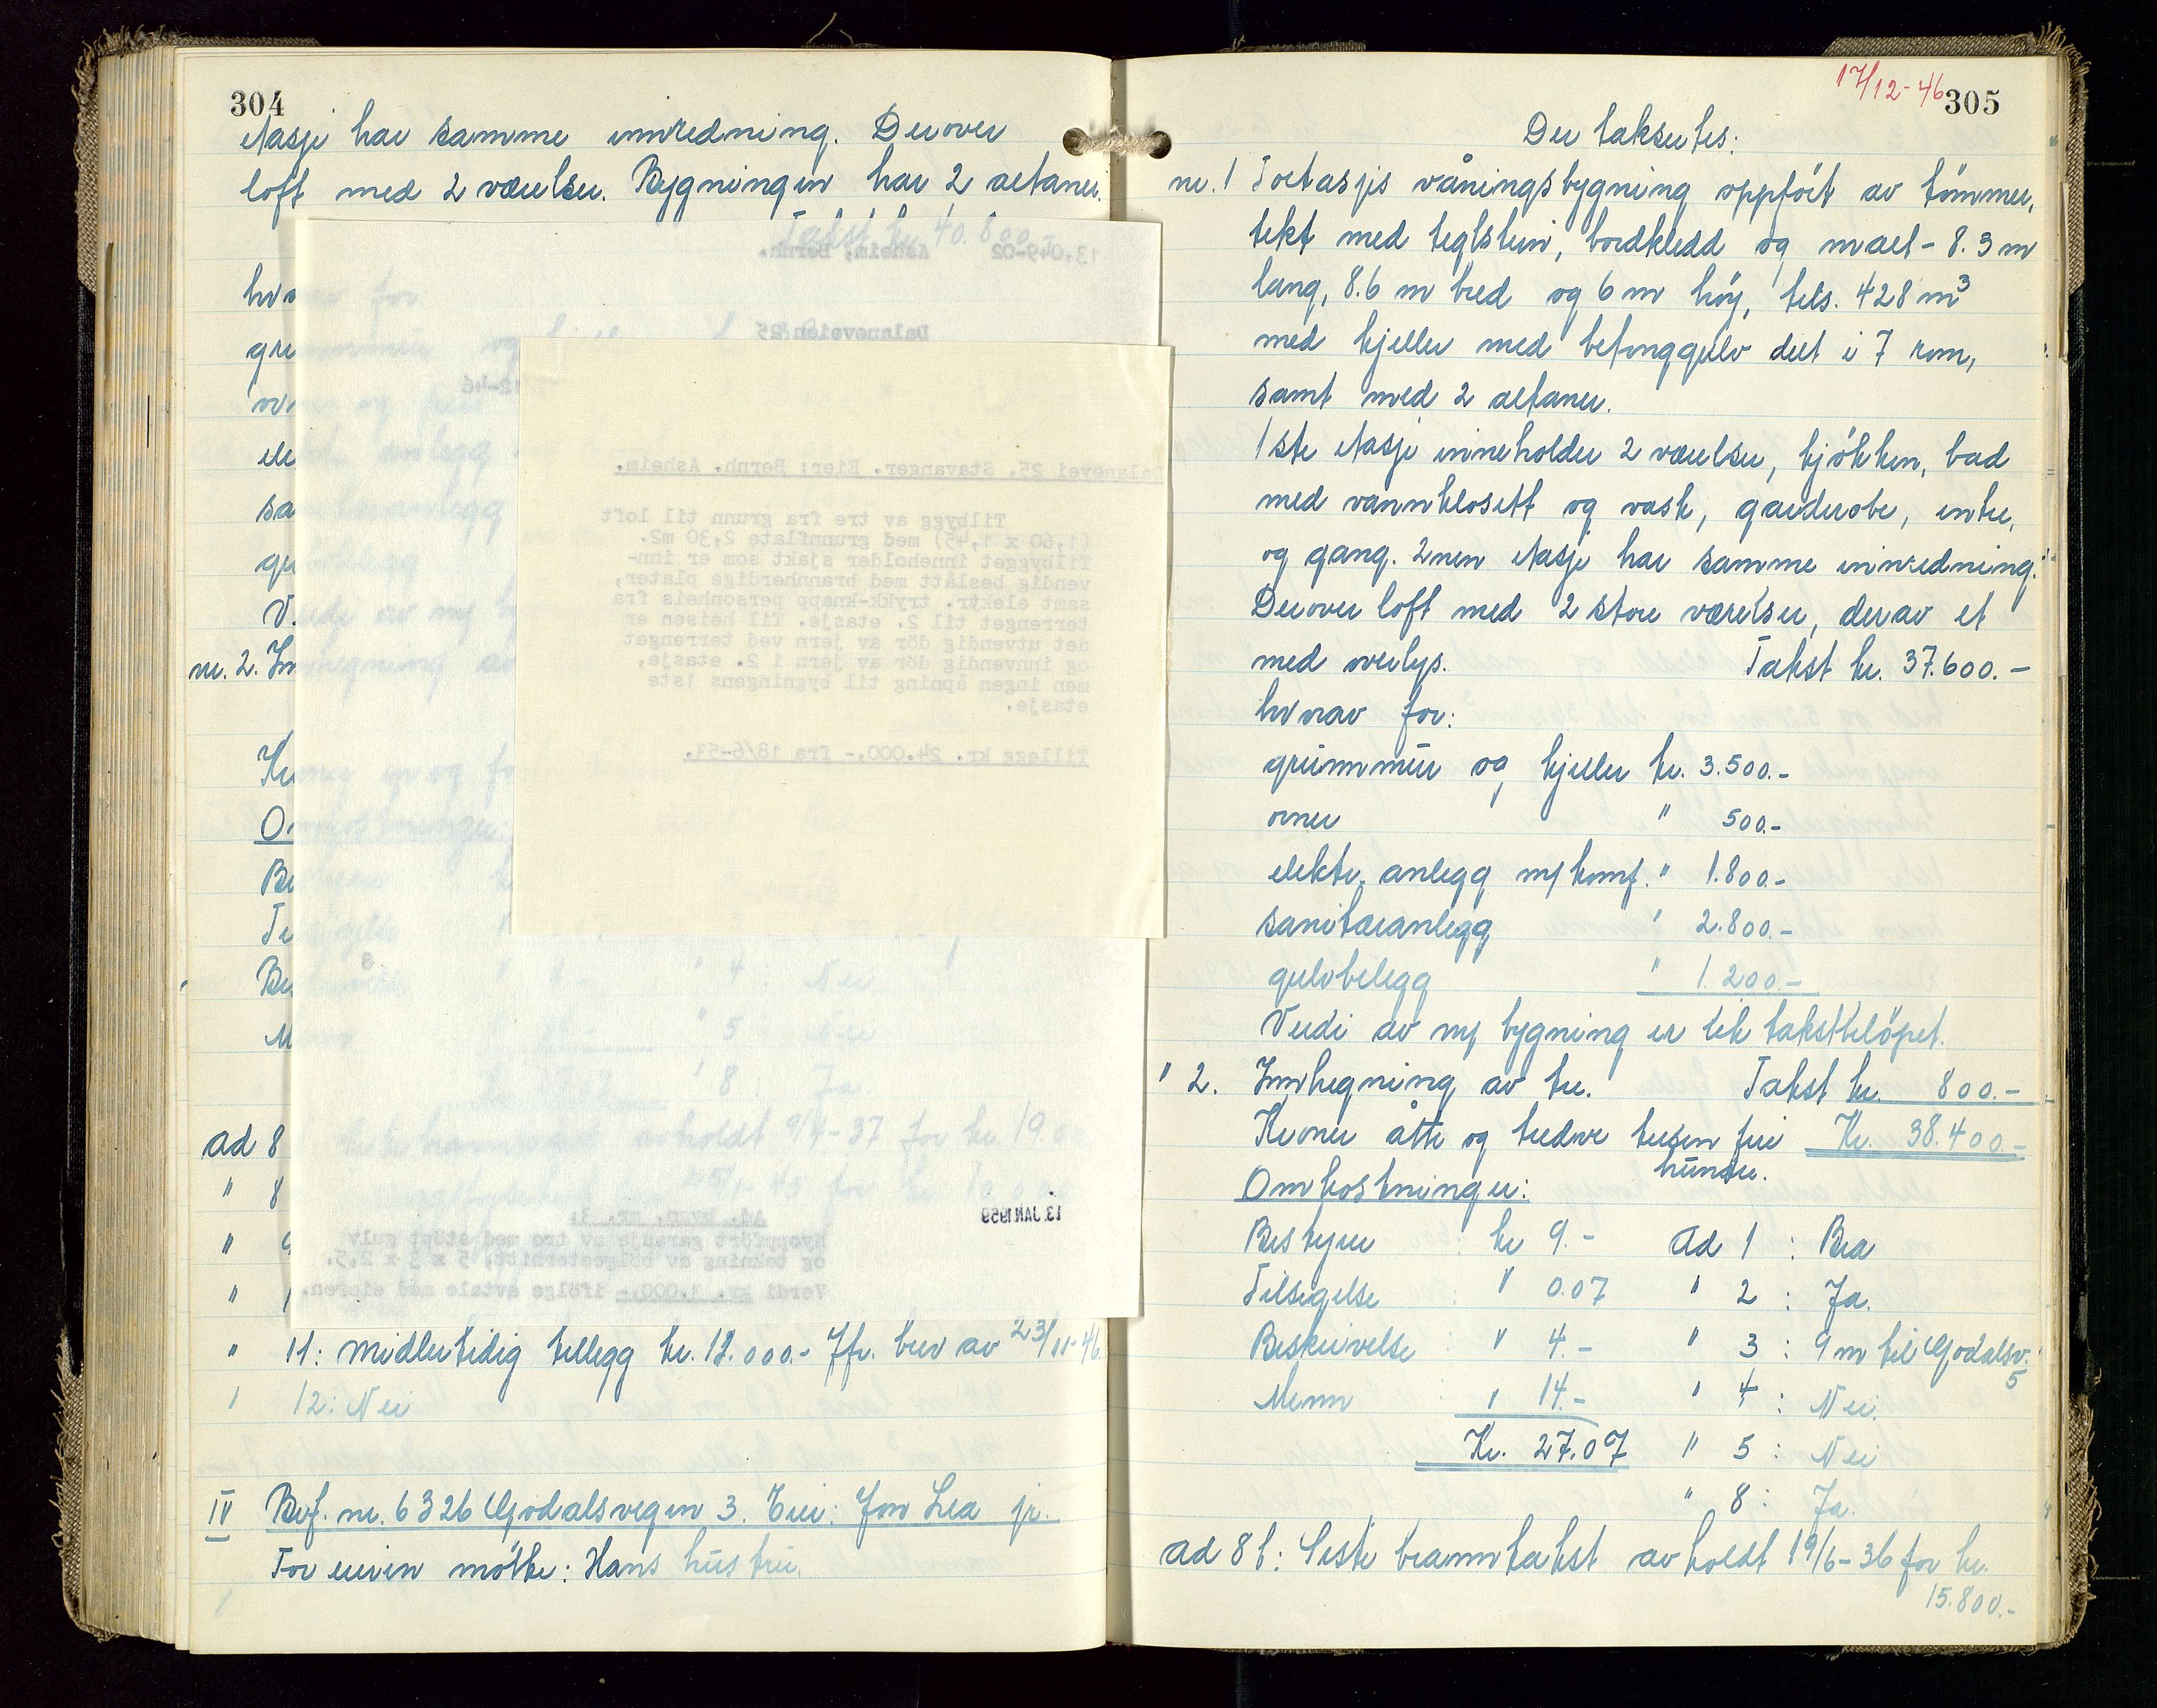 304
etasje har samme innredning. Derover
loft med 2 værelser. Bygningen har 2 altaner.
Takst kr. 40.800.-
hvo
gru
ov
ele
sa
gu
V.
nr. 2. Inn
Kr
Om
Be
Ti
Be
M
ad 8
" 8
" 9
" 1
" 11: Midlertidig tillegg kr. 12.000.- Jfr. brev av 23/11-46.
" 12: Nei
IV Bef. nr. 6326 Godalsvegen 3. Eier: Jon Lea jr.
For eieren møtte: Hans hustru.
13.049-02 Asheim, Bernh.
Dalaneveien 25
Dalanevei 25. Stavanger. Eier: Bernh. Asheim.
Tilbygg av tre fra grunn til loft
(1,60 x 1,45) med grunnflate 2,30 m2.
Tilbygget inneholder sjakt som er inn-
vendig beslått med brannherdige plater,
samt elektr. trykk-knapp personheis fra
terrenget til 2. etasje. Til heisen er
det utvendig dör av jern ved terrenget
og innvendig dör av jern i 2. etasje,
men ingen åpning til bygningens 1ste
etasje.
Tillegg kr. 24.000.- fra 18/6-53.
13 JAN 1959
Ad. bygn. nr. 3:
Nyoppfört garasje av tre med stöpt gulv
og tekning av bölgeeternitt, 5 x 3 x 2,5.
Verdi kr. 3.000.- ifölge avtale med eieren.
17/12-46 305
Der taksertes:
nr. 1 Toetasjes våningsbygning oppfört av tömmer,
tekt med teglstein, bordkledd og malt - 8.3 m
lang, 8.6 m bred og 6 m höy, tils. 428 m³
med kjeller med betonggulv delt i 7 rom,
samt med 2 altaner.
1ste etasje inneholder 2 værelser, kjökken, bad
med vannklosett og vask, garderobe, entre,
og gang. 2nen etasje har samme innredning.
Derover loft med 2 store værelser, derav et
med overlys. Takst kr. 37.600.-
hvorav for:
grunnmur og kjeller kr. 3.500.-
ovner " 500.-
elektr. anlegg m/komf. " 1.800.-
sanitæranlegg " 2.800.-
gulvbelegg " 1.200.-
Verdi av ny bygning er lik takstbelöpet.
" 2. Innhegning av tre. Takst kr. 800.-
Kroner åtte og tredve tusen fire Kr. 38.400.-
hundre.
Omkostninger:
Bestyrer kr 9.- ad 1 : Bra
Tilsigelse " 0.07 " 2 : Ja.
Beskrivelse " 4.- " 3 : 9 m til Godalsv. 5
Menn " 14.- " 4 : Nei.
Kr. 27.07 " 5 : Nei
" 8 : Ja.
ad 8 b: Siste branntakst avholdt 19/6-36 for kr.
15.800.-